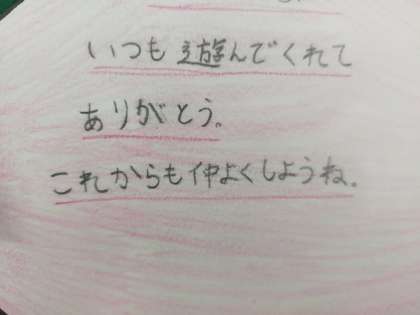 いつも遊んでくれて
ありがとう。
これからも仲よくしようね。